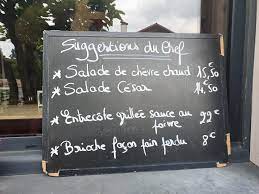 Suggestions du Chef
* Salade de chèvre chaud 15,50
* Salade César 14,50
* Entrecôte grillée sauce au 22€
poivre
* Brioche façon pain perdu 8€